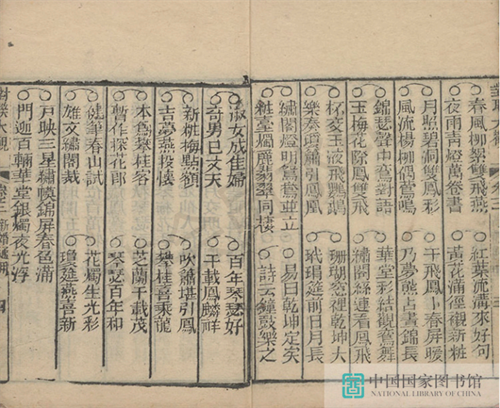 春風柳絮雙飛燕
夜雨青燈萬卷書
月照碧洞雙鳳彩
風流楊柳偶鶯鳴
錦瑟聲中鸞對語
玉梅花際鳳雙飛
杯交玉液飛鸚鵡
樂奏瓊簫引鳳凰
繡閣燈明鴛鴦並立
粧臺燭麗翡翠同棲
紅葉流溝來好句
黃花滿徑襯新粧
干飛鳳卜春屏暖
乃夢熊占晝錦長
華堂彩結鴛鴦舞
繡閣絲連看鳳飛
珊瑚窓裡乾坤大
玳瑁筵前日月長
易曰乾坤定矣
詩云鐘鼓樂之
淑女成佳婦
奇男已丈夫
新粧梅點額
吉夢燕投懷
本為桂客
暫作探花郎
健筆春山試
雄文繡閣裁
百年琴瑟好
千載鳳麟祥
吹簫堪引鳳
攀桂喜乘龍
芝蘭千載茂
琴瑟百年和
花燭生光彩
瓊筵燕喜新
戶映三星繡幙錦屏春色滿
門迎百輛華堂銀燭夜光浮
大觀 卷之二 新婚通用
中国国家图书馆
NATIONAL LIBRARY OF CHINA